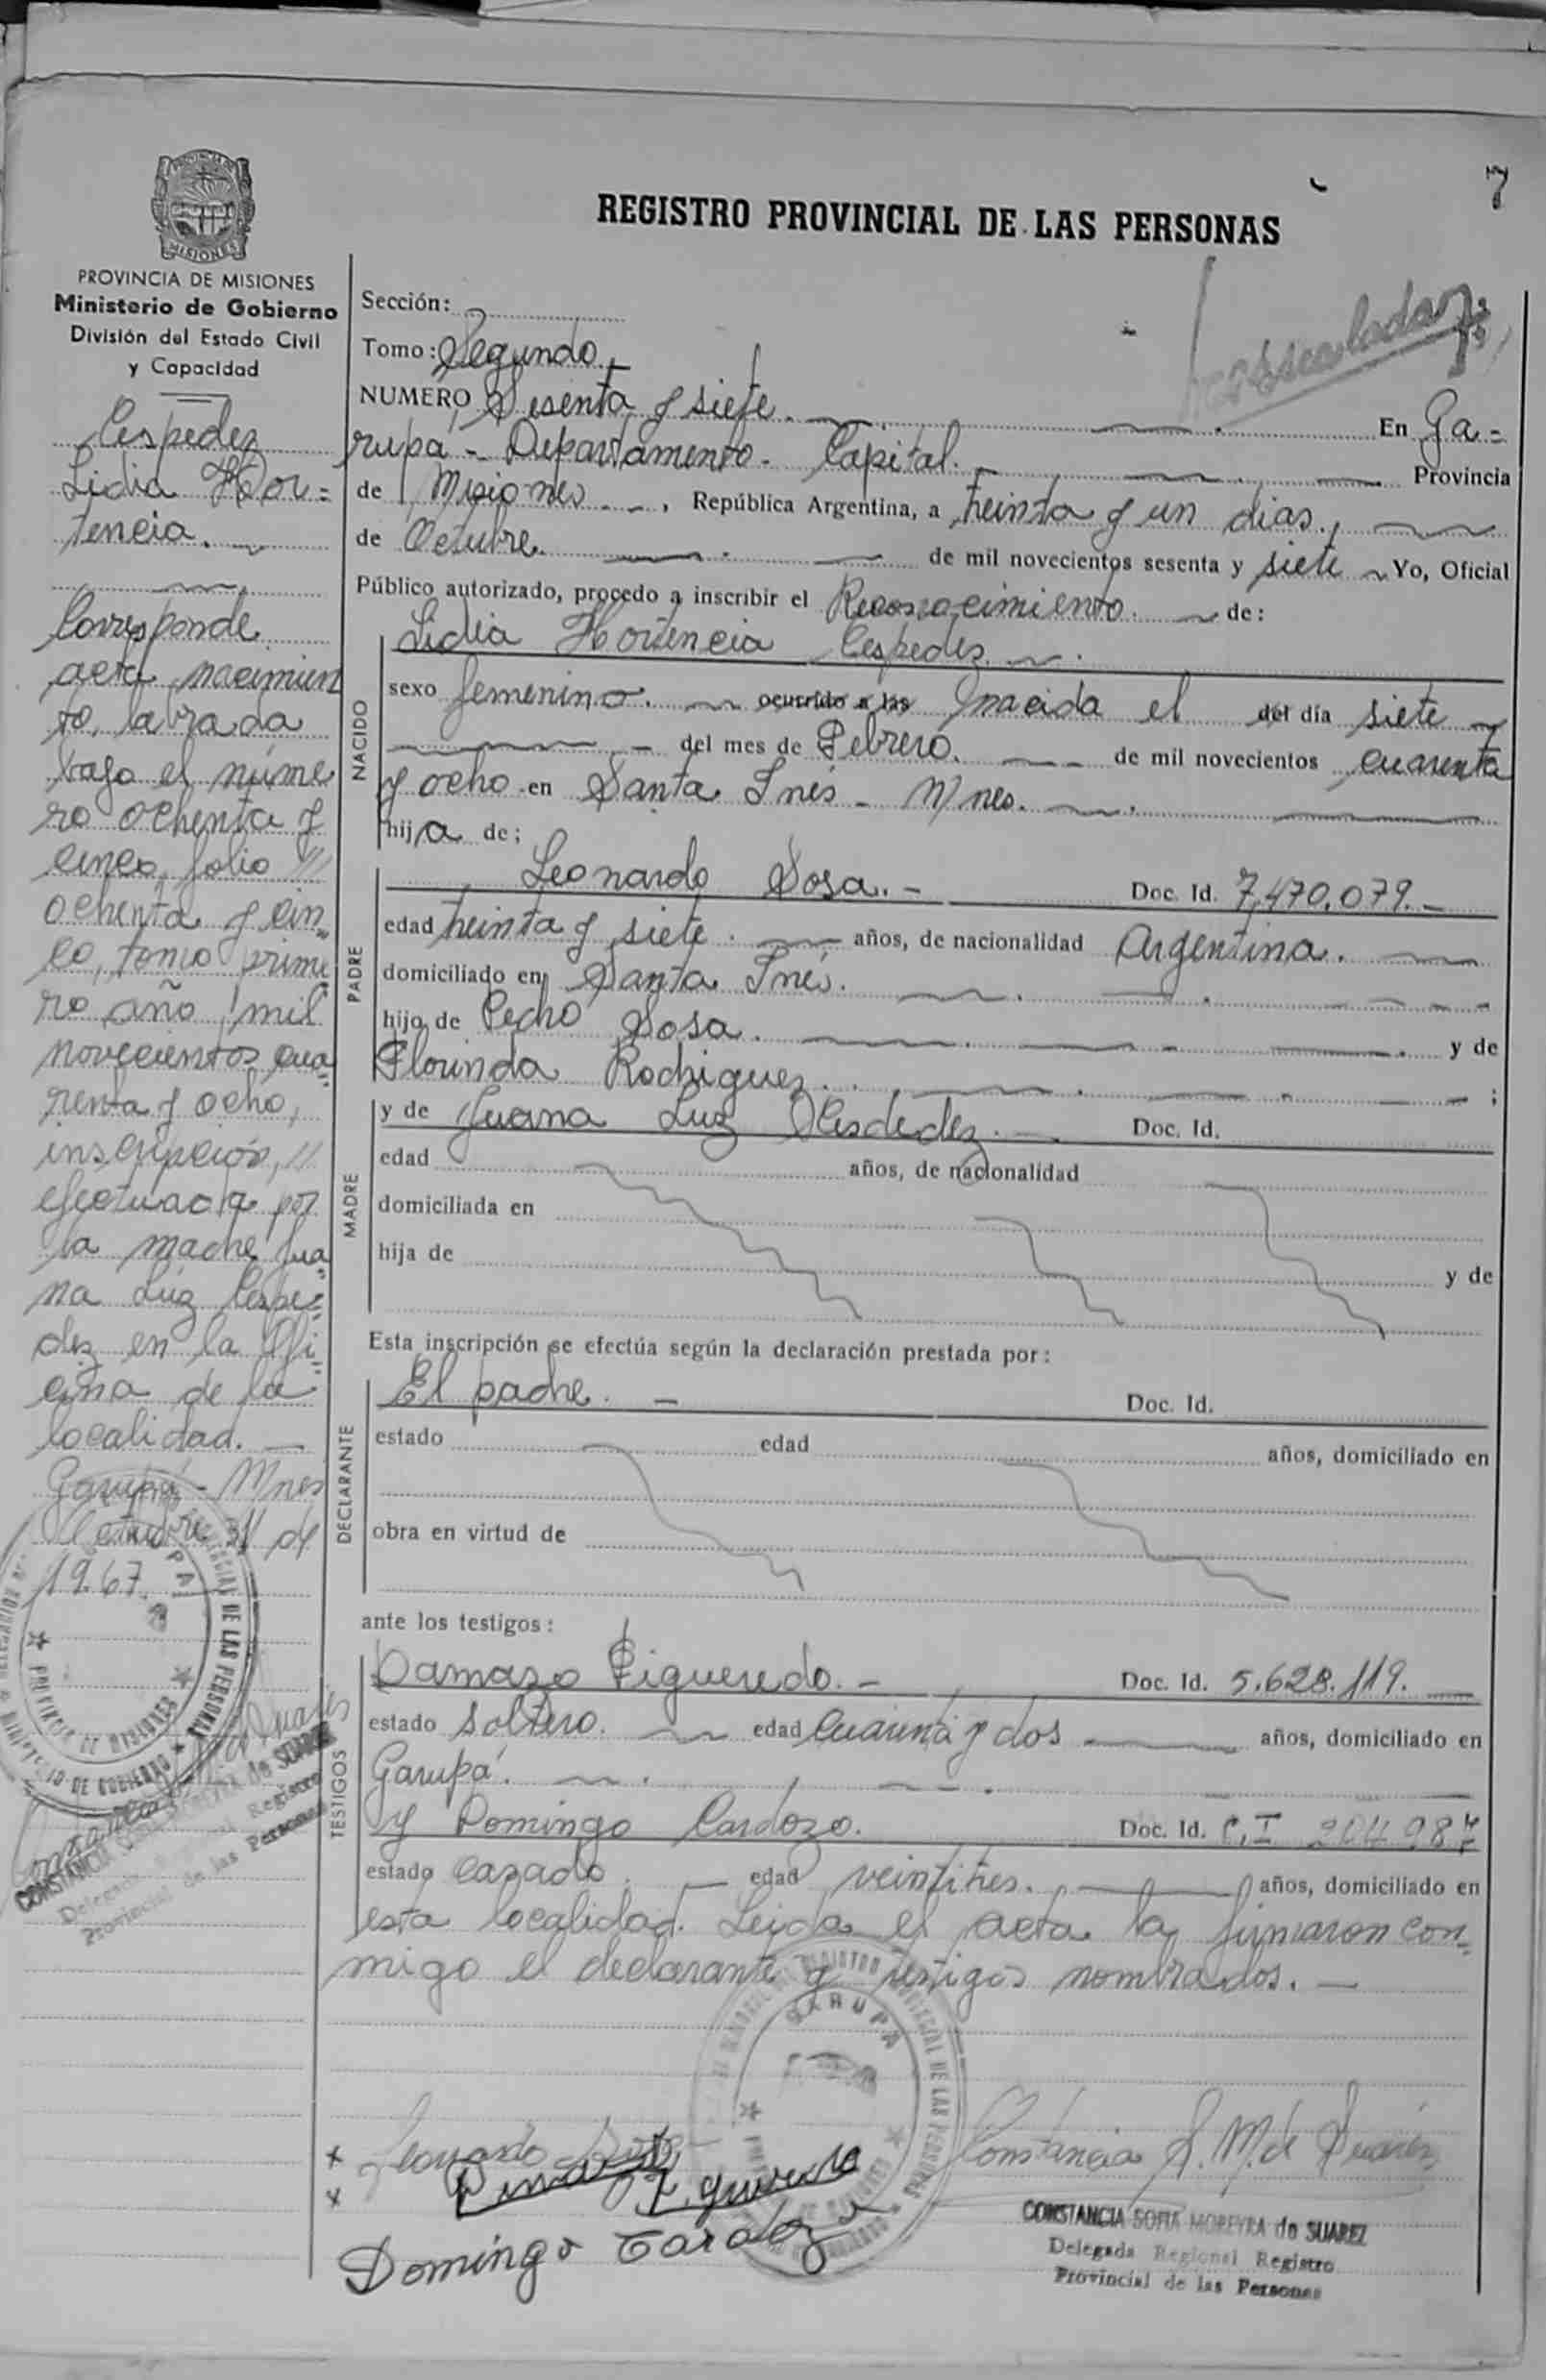 7
REGISTRO PROVINCIAL DE LAS PERSONAS
PROVINCIA DE MISIONES
Ministerio de Gobierno
División del Estado Civil
y Capacidad
Cespedez
Lidia Hor=
tencia.
Corresponde
acta nacimien
to, labrada
bajo el núme
ro ochenta y
cinco, folio //
ochenta y cin
co, tomo prime
ro año mil
novecientos cua
renta y ocho,
inscripción, //
efectuada por
la madre Jua
na Luz Cespe=
dez en la Ofi
cina de la
localidad. —
Garupá - Mnes
Octubre 31 de
1967.
CONSTANCIA SOFIA MOREYRA de SUAREZ
Delegada Regional Registro
Provincial de las Personas
Sección:
Tomo: Segundo.
NUMERO Sesenta y siete. En Ga=
rupá - Departamento - Capital. - Provincia
de Misiones - -, República Argentina, a treinta y un dias.,
de Octubre. de mil novecientos sesenta y siete Yo, Oficial
Público autorizado, procedo a inscribir el Reconocimiento. de:
NACIDO
Lidia Hortencia Cespedez.
sexo femenino. ocurrido a las nacida el del día siete
del mes de Febrero. de mil novecientos cuarenta
y ocho en Santa Inés - Mnes.
hija de;
PADRE
Leonardo Sosa. - Doc. Id. 7.470.079. -
edad treinta y siete. años, de nacionalidad Argentina.
domiciliado en Santa Inés.
hijo de Pedro Sosa. y de
Florinda Rodriguez. ;
MADRE
y de Juana Luz Doc. Id.
edad años, de nacionalidad
domiciliada en
hija de y de
Esta inscripción se efectúa según la declaración prestada por:
DECLARANTE
El padre. - Doc. Id.
estado edad años, domiciliado en
obra en virtud de
ante los testigos:
TESTIGOS
Damazo Figueredo. - Doc. Id. 5.628.119.
estado soltero. edad cuarenta y dos años, domiciliado en
Garupá.
y Domingo Cardozo. Doc. Id. C.I 204.987
estado casado. edad veintitres. años, domiciliado en
esta localidad. Leida el acta la firmaron con=
migo el declarante y testigos nombrados. —
GARUPA
Leonardo Sosa
Domingo Cardozo
Constancia S. M. de Suarez
CONSTANCIA SOFIA MOREYRA de SUAREZ
Delegada Regional Registro
Provincial de las Personas